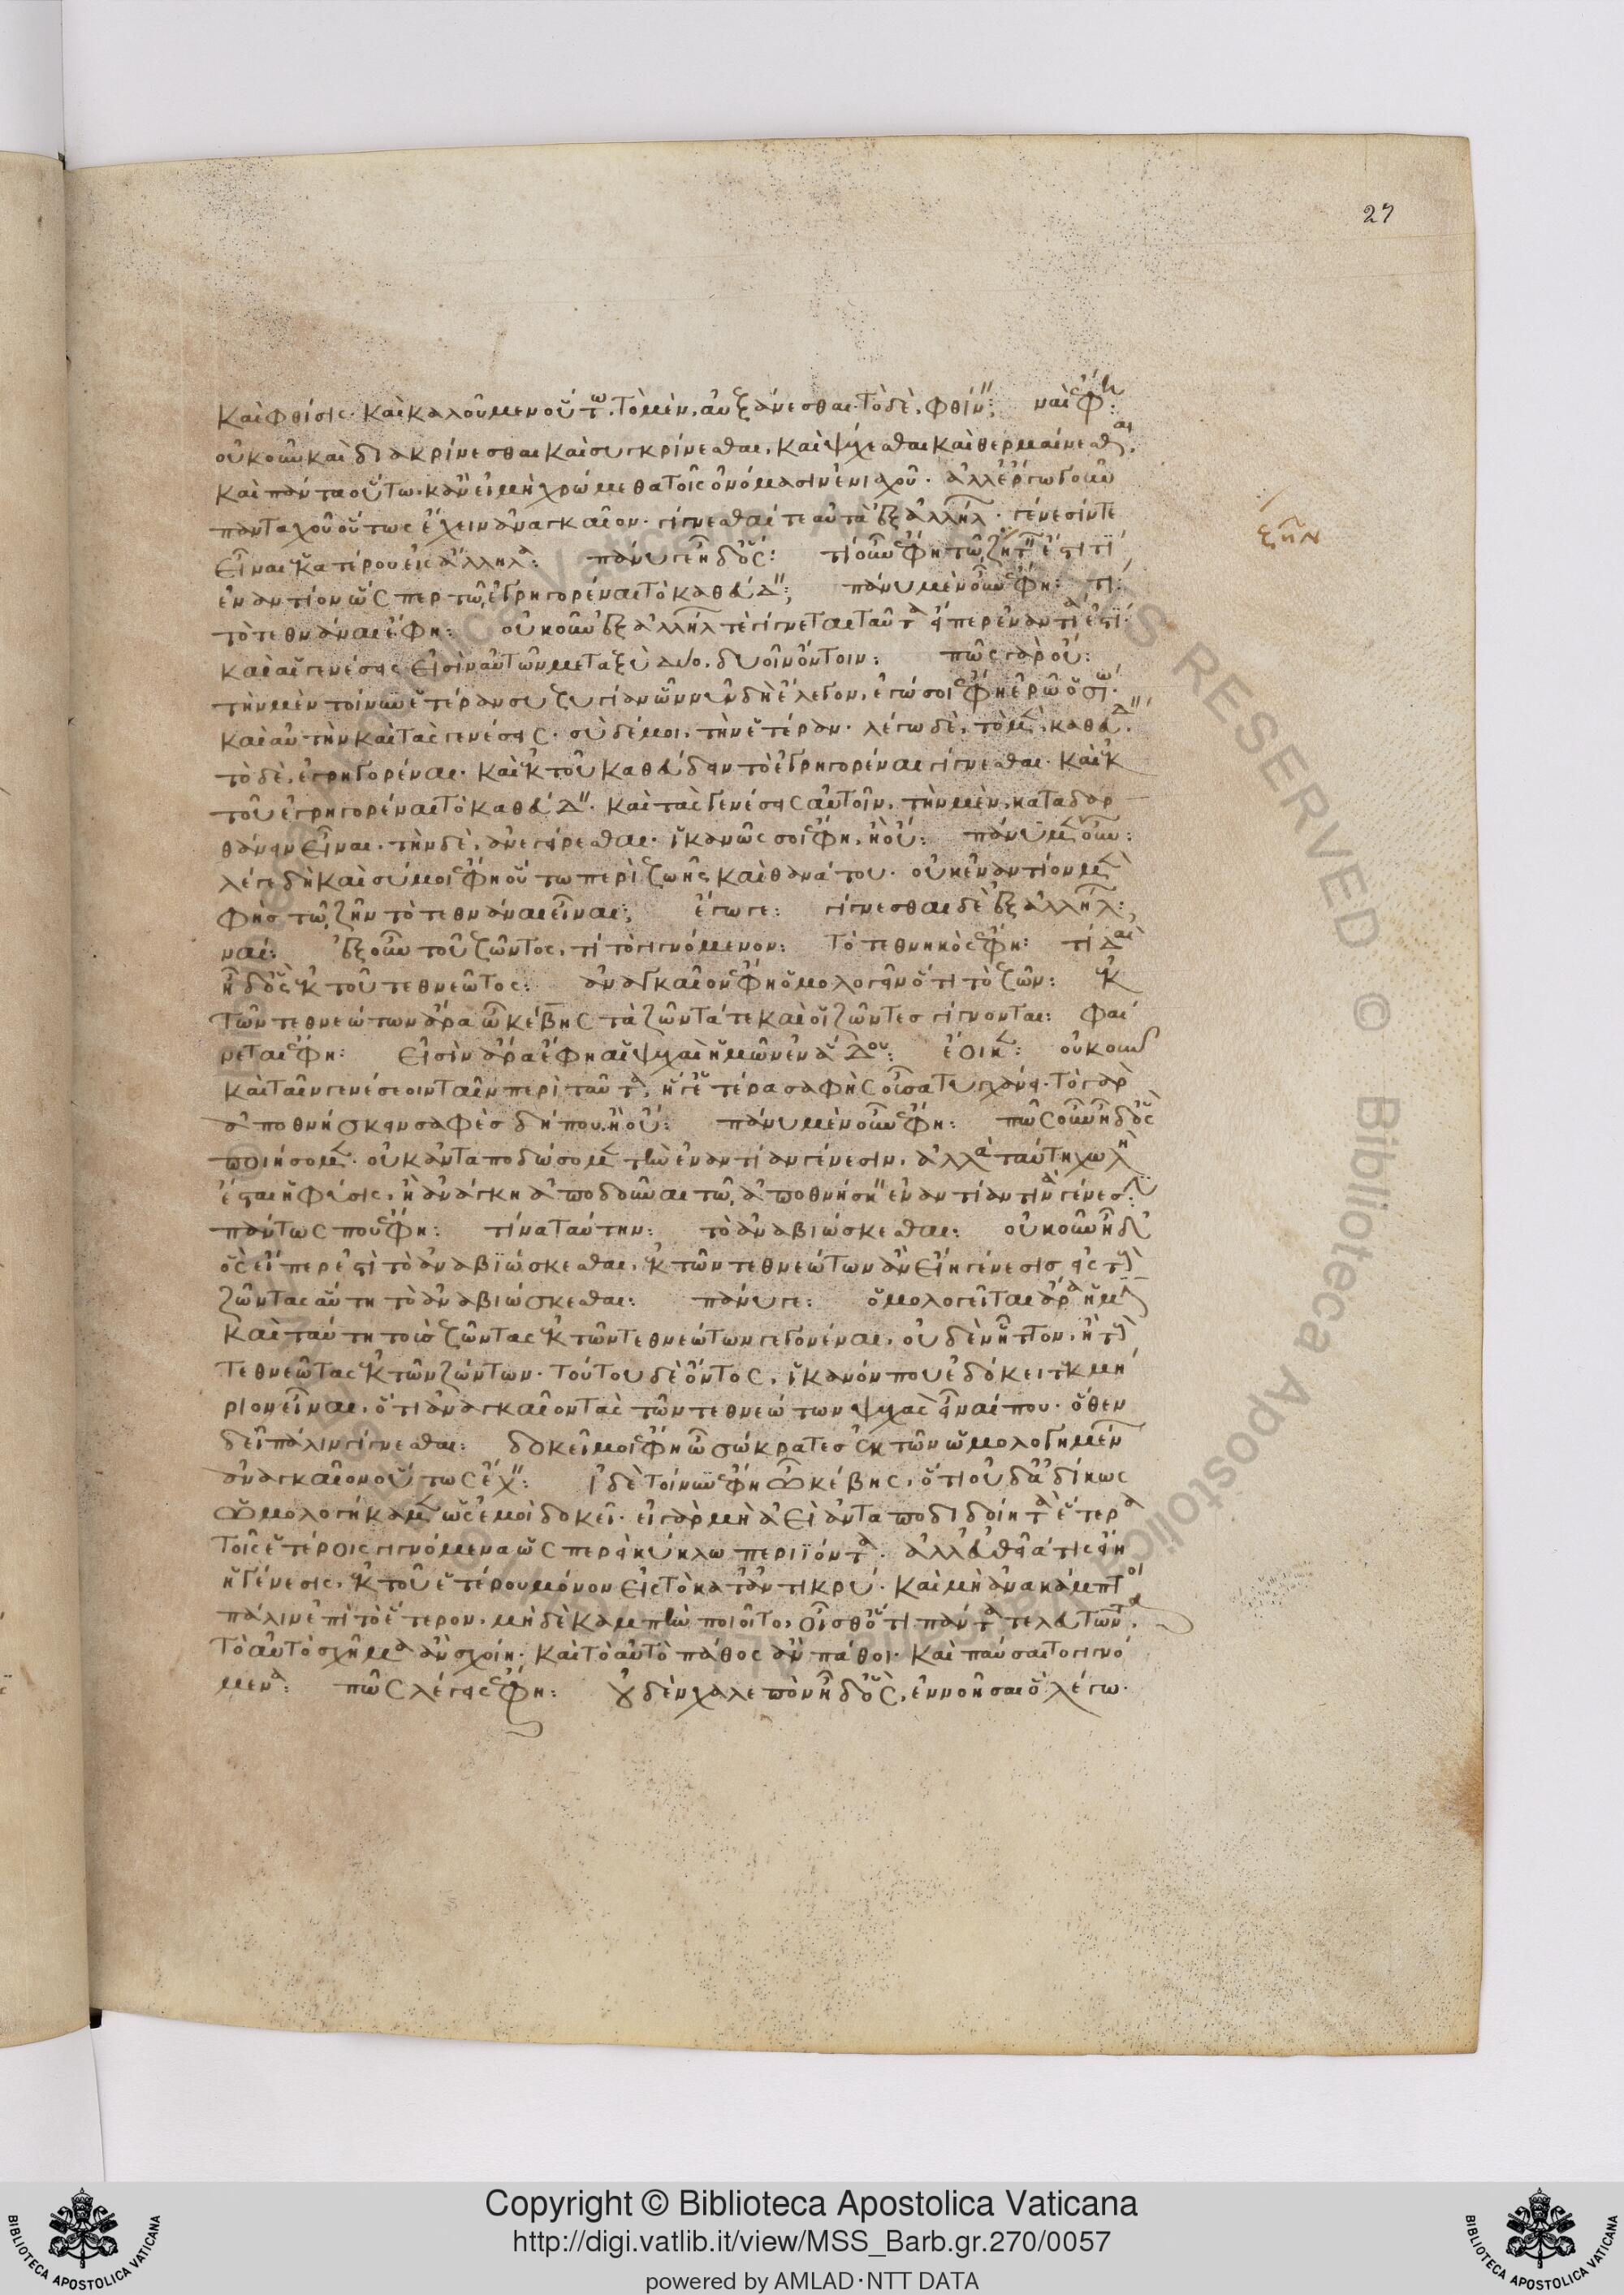 27
καὶ φθίσις· καὶ καλοῦμεν οὕτω, τὸ μὲν, αὐξάνεσθαι τὸ δὲ, φθίν(ειν); ναὶ ἔφη:
οὐκοῦν καὶ διακρίνεσθαι καὶ συγκρίνεσθαι, καὶ ψύχεσθαι καὶ θερμαίνεσθαι.
καὶ πάντα οὕτω· κἂν εἰ μὴ χρώμεθα τοῖς ὀνόμασιν ἐνιαχοῦ· ἀλλ' ἔργω γοῦν
πανταχοῦ οὕτως ἔχειν ἀναγκαῖον· γίγνεσθαί τε αὐτὰ ἐξ ἀλλήλ(ων)· γένεσίν τε
εἶναι ἑκατέρου εἰς ἄλληλα: πάνυ γε ἦ δ' ὅς: τί οὖν ἔφη τῶ ζῆν ἐστί τι
ἐναντίον ὥσπερ τῶ ἐγρηγορέναι τὸ καθεύδ(ειν); πάνυ μὲν οὖν ἔφη: τί:
τὸ τεθνάναι ἔφη: οὐκοῦν ἐξ ἀλλήλ(ων) τὲ γίγνεται ταῦτα εἴπερ ἐναντία ἐστί·
καὶ αἱ γενέσεις εἰσὶν αὐτῶν μεταξὺ δύο, δυοῖν ὄντοιν: πῶς γὰρ οὔ:
τὴν μὲν τοίνυν ἑτέραν συζυγίαν ὧν νυνδὴ ἔλεγον, ἐγώ σοι ἔφη ἐρῶ ὁ σω(κράτης)·
καὶ αὐτὴν καὶ τὰς γενέσεις· σὺ δέ μοι, τὴν ἑτέραν· λέγω δὲ, τὸ μ(ὲν), καθεύδ(ειν),
τὸ δὲ, ἐγρηγορέναι· καὶ ἐκ τοῦ καθεύδειν τὸ ἐγρηγορέναι γίγνεσθαι· καὶ ἐκ
τοῦ ἐγρηγορέναι τὸ καθεύδ(ειν)· καὶ τὰς γενέσεις αὐτοῖν, τὴν μὲν, καταδαρ
θάνειν εἶναι, τὴν δὲ, ἀνεγείρεσθαι· ἱκανῶς σοι ἔφη, ἢ οὔ: πάνυ μ(ὲν) οὖν:
λέγε δὴ καὶ σύ μοι ἔφη οὕτω περὶ ζωῆς καὶ θανάτου· οὐκ ἐναντίον μ(ὲν)
φῂς τῶ ζῆν τὸ τεθνάναι εἶναι; ἔγωγε: γίγνεσθαι δὲ ἐξ ἀλλήλ(ων);
ναί: ἐξ οὖν τοῦ ζῶντος, τί τὸ γιγνόμενον: τὸ τεθνηκὸς ἔφη: τί δαὶ
ἦ δ' ὃς ἐκ τοῦ τεθνεῶτος: ἀναγκαῖον ἔφη ὁμολογεῖν ὅτι τὸ ζῶν: ἐκ
τῶν τεθνεώτων ἄρα ὦ κέβης τὰ ζῶντά τε καὶ οἱ ζῶντες γίγνονται: φαί
νεται ἔφη: εἰσὶν ἄρα ἔφη αἱ ψυχαὶ ἡμῶν ἐν ἅδου: ἔοικ(εν): οὐκοῦν
καὶ ταῖν γενεσέοιν ταῖν περὶ ταῦτα, ἥ γ' ἑτέρα σαφὴς οὖσα τυγχάνει· τὸ γὰρ
ἀποθνήσκειν σαφὲς δήπου, ἢ οὔ: πάνυ μὲν οὖν ἔφη: πῶς οὖν ἦ δ' ὃς
ποιήσομ(εν)· οὐκ ἀνταποδώσομ(εν) τὴν ἐναντίαν γένεσιν, ἀλλὰ ταύτη χωλὴ
ἔσται ἡ φύσις, ἢ ἀνάγκη ἀποδοῦναι τῶ ἀποθνήσκ(ειν) ἐναντίαν τινὰ γένεσ(ιν):
πάντως που ἔφη: τίνα ταύτην: τὸ ἀναβιώσκεσθαι: οὐκοῦν ἦ δ'
ὃς εἴπερ ἐστὶ τὸ ἀναβιώσκεσθαι, ἐκ τῶν τεθνεώτων ἂν εἴη γένεσις εἰς τ(οὺς)
ζῶντας αὕτη τὸ ἀναβιώσκεσθαι: πάνυ γε: ὁμολογεῖται ἄρα ἡμ(ῖν)
καὶ ταύτη τοὺς ζῶντας ἐκ τῶν τεθνεώτων γεγονέναι, οὐδὲν ἧττον, ἢ τ(οὺς)
τεθνεῶτας ἐκ τῶν ζώντων· τούτου δὲ ὄντος, ἱκανόν που ἐδόκει τεκμή
ριον εἶναι, ὅτι ἀναγκαῖον τὰς τῶν τεθνεώτων ψυχὰς εἶναί που· ὅθεν
δεῖ πάλιν γίγνεσθαι: δοκεῖ μοι ἔφη ὦ σώκρατες ἐκ τῶν ὡμολογημέν(ων)
ἀναγκαῖον οὕτως ἔχ(ειν): ἰδὲ τοίνυν ἔφη ὦ κέβης, ὅτι οὐδ' ἀδίκως
ὡμολογήκαμ(εν) ὡς ἐμοὶ δοκεῖ· εἰ γὰρ μὴ ἀεὶ ἀνταποδιδοίη τὰ ἕτερα
τοῖς ἑτέροις γιγνόμενα ὥσπερεὶ κύκλω περιϊόντα· ἀλλ' εὐθεῖά τις εἴη
ἡ γένεσις, ἐκ τοῦ ἑτέρου μόνον εἰς τὸ καταντικρύ· καὶ μὴ ἀνακάμπτοι
πάλιν ἐπὶ τὸ ἕτερον, μηδὲ καμπὴν ποιοῖτο, οἶσθ' ὅτι πάντα τελευτῶντα,
τὸ αὐτὸ σχῆμα ἂν σχοίη· καὶ τὸ αὐτὸ πάθος ἂν πάθοι· καὶ παύσαιτο γιγνό
μενα: πῶς λέγεις ἔφη: οὐδὲν χαλεπὸν ἦ δ' ὃς, ἐννοῆσαι ὃ λέγω·
Copyright © Biblioteca Apostolica Vaticana
http://digi.vatlib.it/view/MSS_Barb.gr.270/0057
powered by AMLAD·NTT DATA
BIBLIOTECA APOSTOLICA VATICANA
BIBLIOTECA APOSTOLICA VATICANA